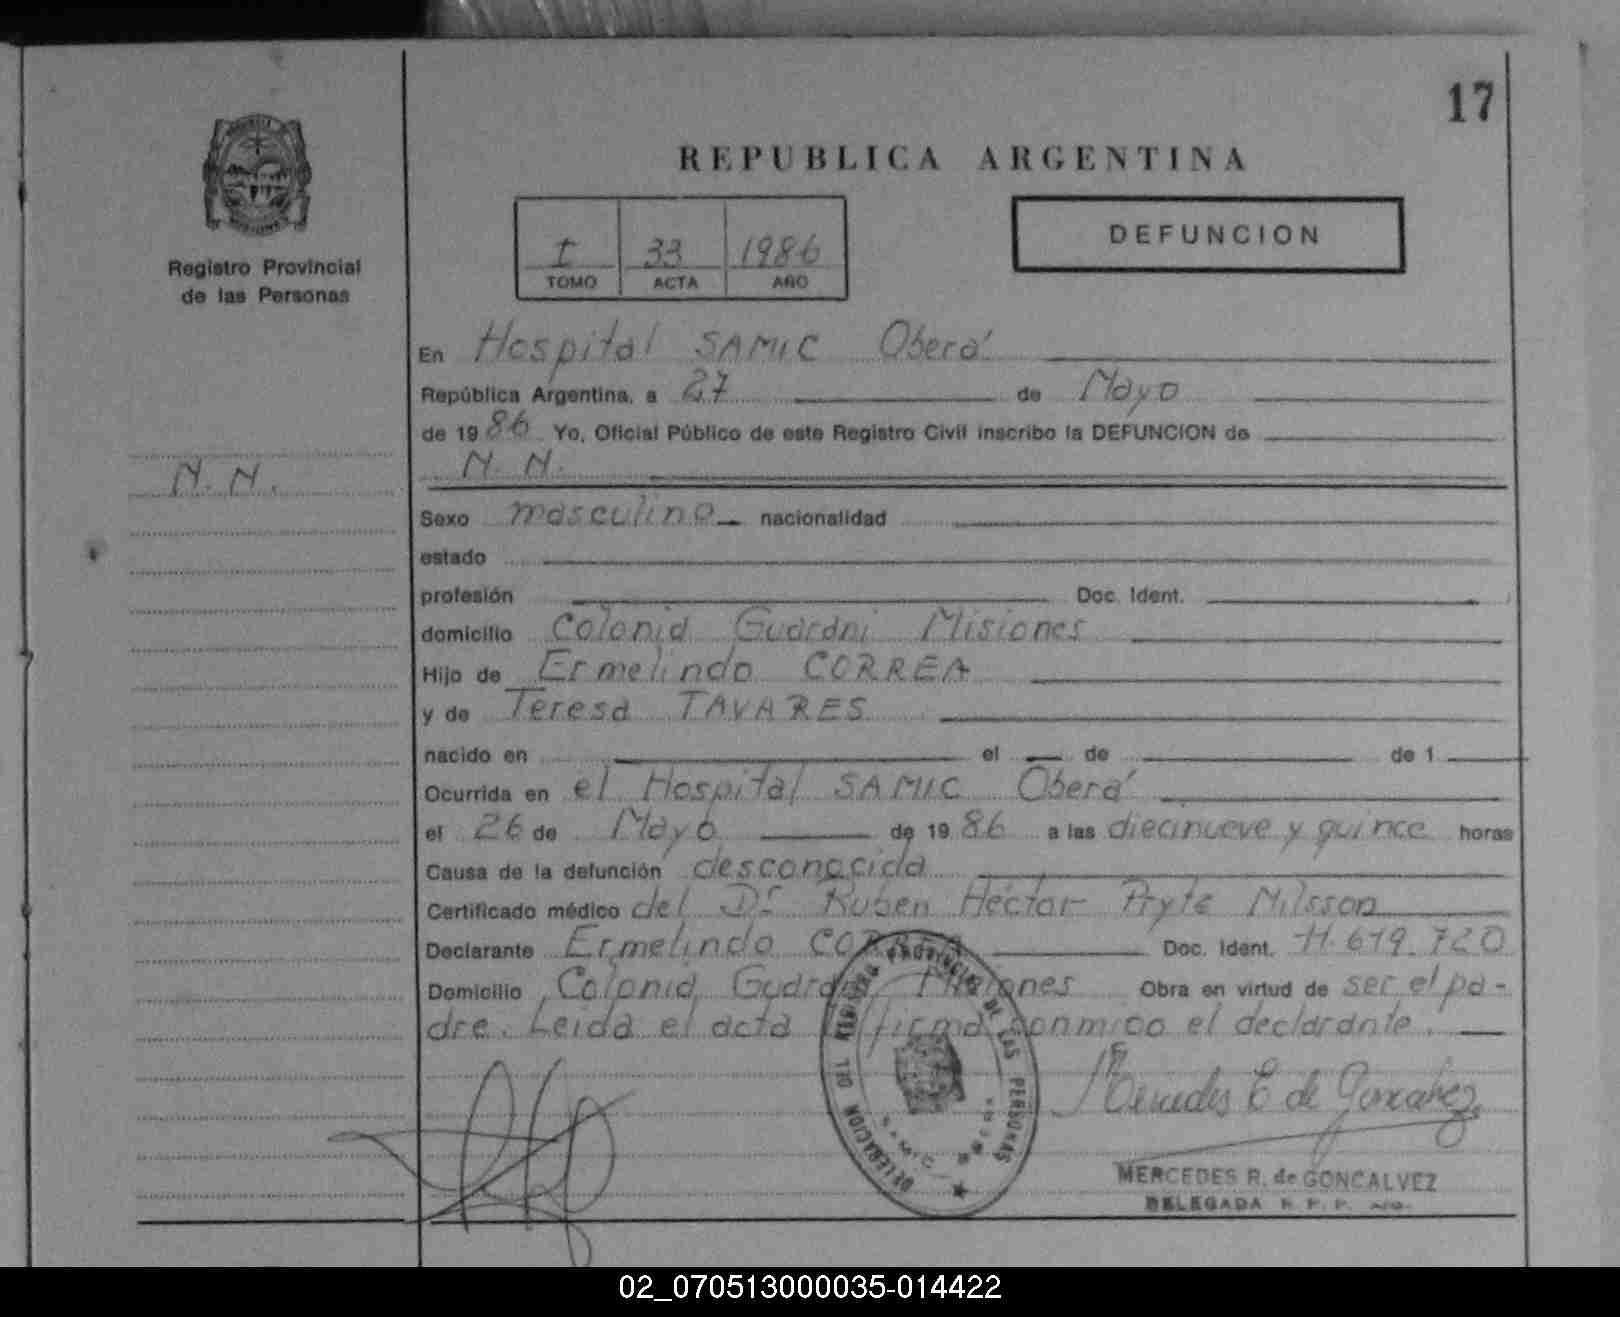 17
REPUBLICA ARGENTINA
I 33 1986
TOMO ACTA AÑO
DEFUNCION
Registro Provincial
de las Personas
N. N.
En Hospital SAMIC Oberá
República Argentina, a 27 de Mayo
de 1986 Yo, Oficial Público de este Registro Civil inscribo la DEFUNCION de
N. N.
Sexo masculino nacionalidad
estado
profesión Doc. Ident.
domicilio Colonia Guarani Misiones
Hijo de Ermelindo CORREA
y de Teresa TAVARES
nacido en el de de 1
Ocurrida en el Hospital SAMIC Oberá
el 26 de Mayo de 1986 a las diecinueve y quince horas
Causa de la defunción desconocida
Certificado médico del Dr Ruben Héctor Nilsson
Declarante Ermelindo CORREA Doc. Ident. 11.619.720
Domicilio Colonia Guarani Misiones Obra en virtud de ser el pa-
dre. Leida el acta firma conmigo el declarante.
DELEGACION DEL REGISTRO PROVINCIAL DE LAS PERSONAS
SAMIC
Mercedes de Goncalvez
MERCEDES R. de GONCALVEZ
DELEGADA R. P. P.
02_070513000035-014422